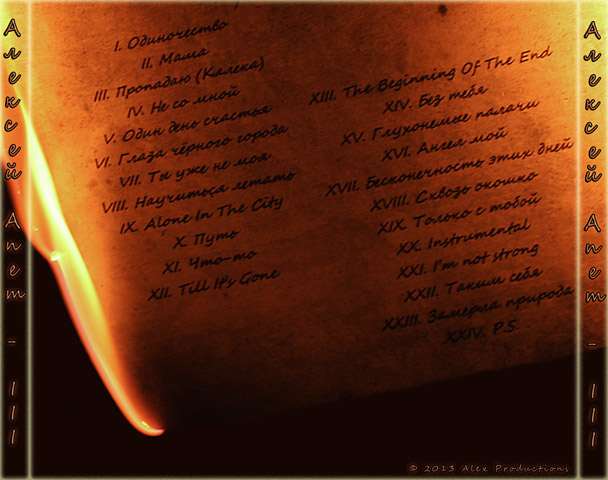 Алексей Апет - III
I. Одиночество
II. Мама
III. Пропадаю (Калека)
IV. Не со мной
V. Один день счастья
VI. Глаза чёрного города
VII. Ты уже не моя
VIII. Научиться летать
IX. Alone In The City
X. Путь
XI. Что-то
XII. Till It's Gone
XIII. The Beginning Of The End
XIV. Без тебя
XV. Глухонемые палачи
XVI. Ангел мой
XVII. Бесконечность этих дней
XVIII. Сквозь окошко
XIX. Только с тобой
XX. Instrumental
XXI. I'm not strong
XXII. Таким себя
XXIII. Замерла природа
XXIV. P.S.
Алексей Апет - III
© 2013 Alex Productions